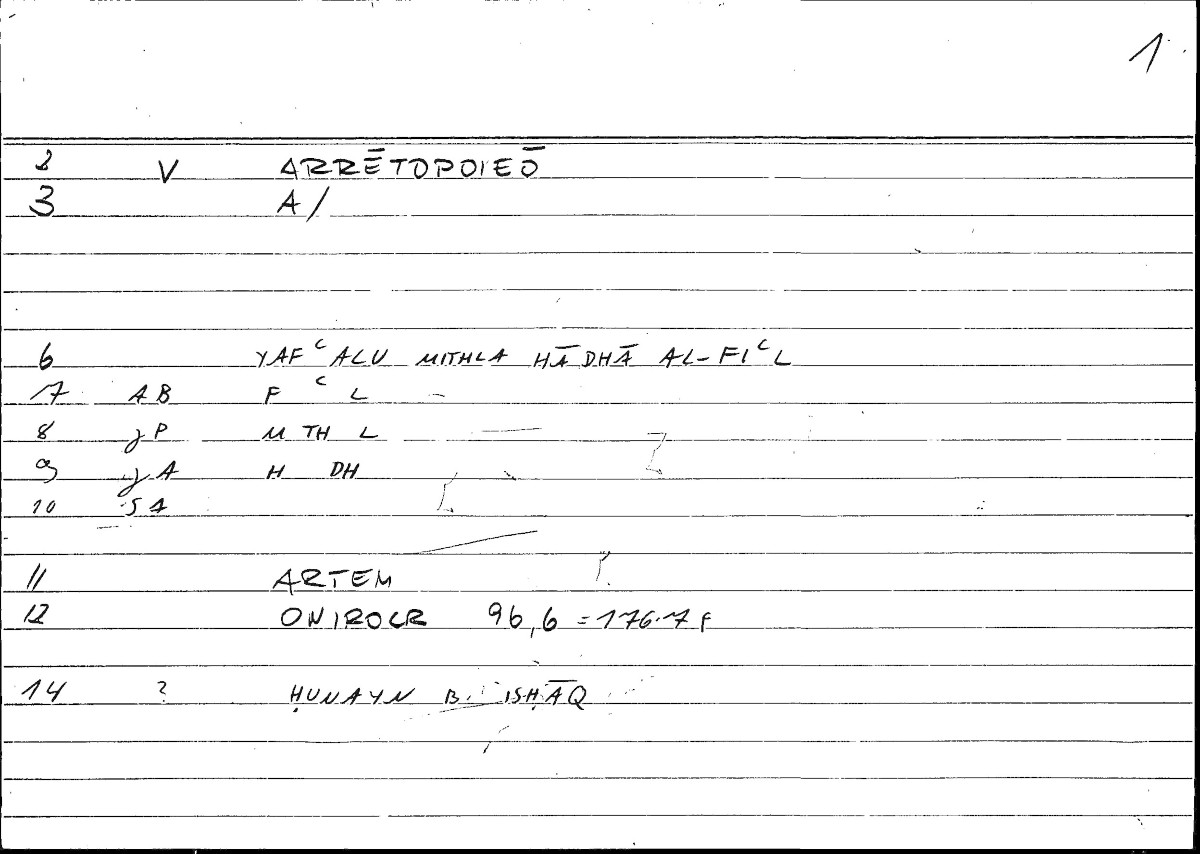 1
2 V ARRĒTOPOIEŌ
3 A/
6 YAFᶜALU MITHLA HĀDHĀ AL-FIᶜL
7 AB F ᶜ L
8 jP M TH L
9 jA H DH
10 SA
11 ARTEM
12 ONIROCR 96,6 = 176.7 f
14 ? ḤUNAYN B. ISḤĀQ